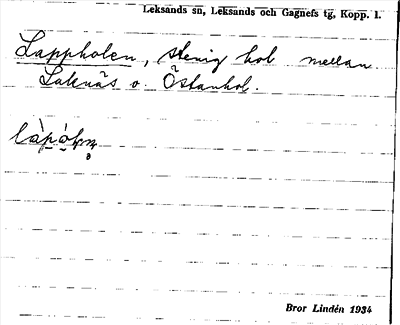 Leksands sn, Leksands och Gagnefs tg, Kopp. l.
Lappholen, stenig hol mellan
Laknäs o. Östanhol.
Bror Lindén 1934